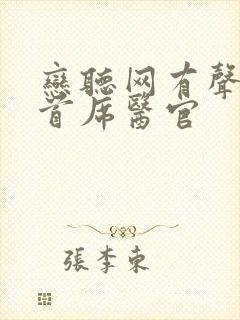 戀聽网有聲
首席醫官
張李東